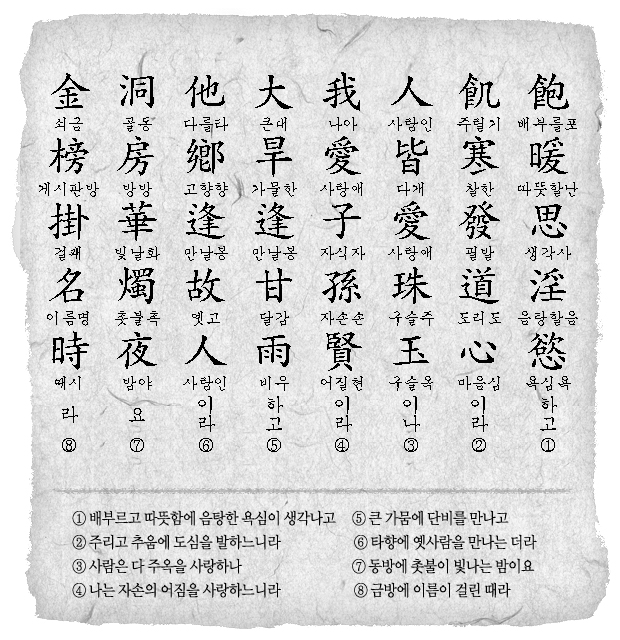 飽 배부를포 暖 따뜻할난 思 생각사 淫 음탕할음 慾 욕심욕 하고 ①
飢 주릴기 寒 찰한 發 필발 道 도리도 心 마음심 이라 ②
人 사람인 皆 다개 愛 사랑애 珠 구슬주 玉 구슬옥 이나 ③
我 나아 愛 사랑애 子 자식자 孫 자손손 賢 어질현 이라 ④
大 큰대 旱 가물한 逢 만날봉 甘 달감 雨 비우 하고 ⑤
他 다를타 鄕 고향향 逢 만날봉 故 옛고 人 사람인 이라 ⑥
洞 골동 房 방방 華 빛날화 燭 촛불촉 夜 밤야 요 ⑦
金 쇠금 榜 게시판방 掛 걸괘 名 이름명 時 때시 라 ⑧
① 배부르고 따뜻함에 음탕한 욕심이 생각나고
② 주리고 추움에 도심을 발하느니라
③ 사람은 다 주옥을 사랑하나
④ 나는 자손의 어짐을 사랑하느니라
⑤ 큰 가뭄에 단비를 만나고
⑥ 타향에 옛사람을 만나는 더라
⑦ 동방에 촛불이 빛나는 밤이요
⑧ 금방에 이름이 걸린 때라